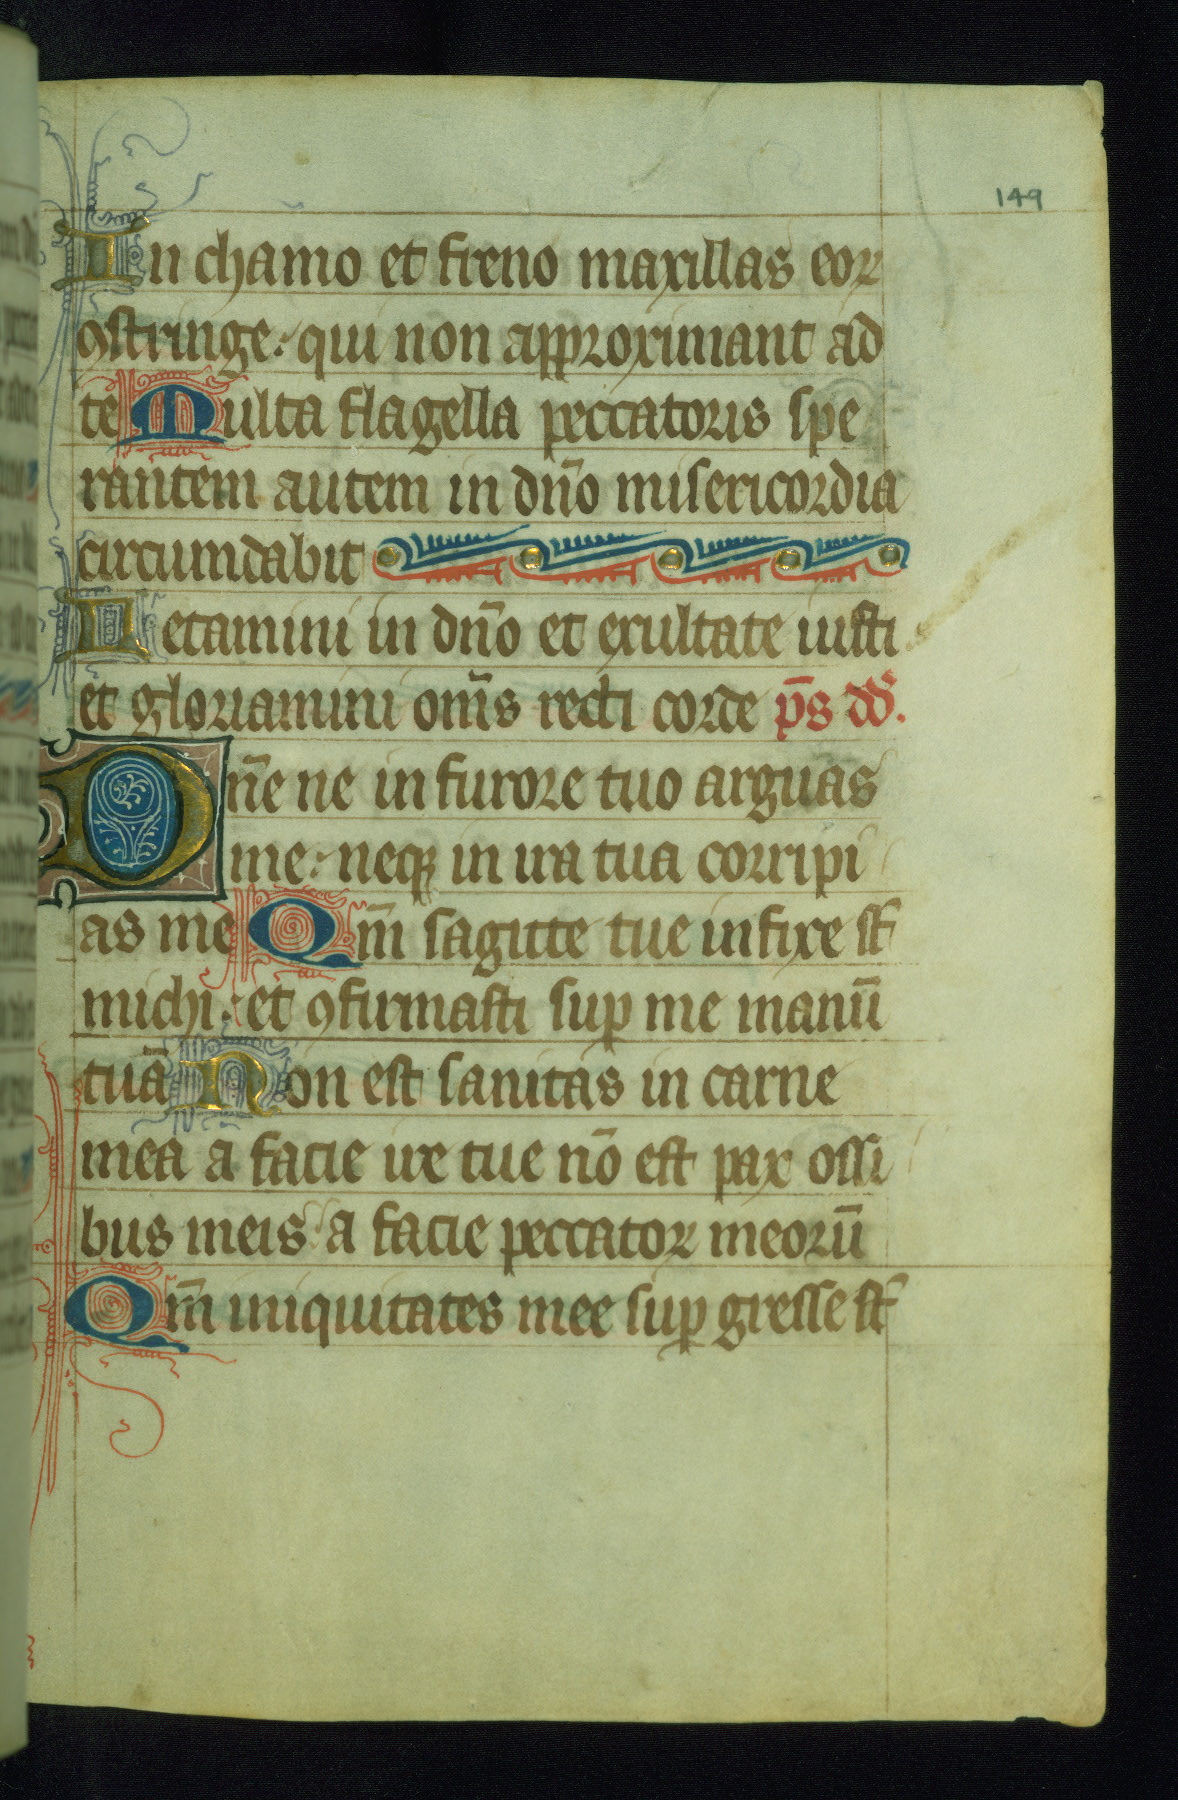 149
In chamo et freno maxillas eoꝝ
ꝯstringe: qui non approximant ad
te Multa flagella peccatoris spe
rantem autem in dn̄o misericordia
circumdabit
Letamini in dn̄o et exultate iusti
et gloriamini om̄s recti corde p̄s dd̄.
Dn̄e ne in furore tuo arguas
me: neqꝫ in ira tua corripi
as me Qm̄ sagitte tue infixe st̄
michi: et ꝯfirmasti suꝑ me manū
tuā Non est sanitas in carne
mea a facie ire tue nō est pax ossi
bus meis: a facie peccatoꝝ meorū
Qm̄ iniquitates mee suꝑ gresse st̄